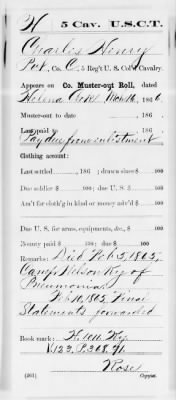 H 5 Cav. U.S.C.T.
Charles Henry
Pvt, Co. C, 5 Reg't U. S. Col'd Cavalry.
Appears on Co. Muster-out Roll, dated
Helena 186 6.
Muster-out to date , 186 .
Last paid to , 186 .
Pay due from enlistment
Clothing account:
Last settled , 186 ; drawn since $ 100
Due soldier $ 100; due U. S. $ 100
Am't for cloth'g in kind or money adv'd $ 100
Due U. S. for arms, equipments, &c., $ 100
Bounty paid $ 100; due $ 100
Remarks: Died Feb 3, 1865,
Camp Nelson Ky of
Pneumonia
Feb 10, 1865. Final
Statements forwarded
Book mark:
Rose
(361) Copyist.